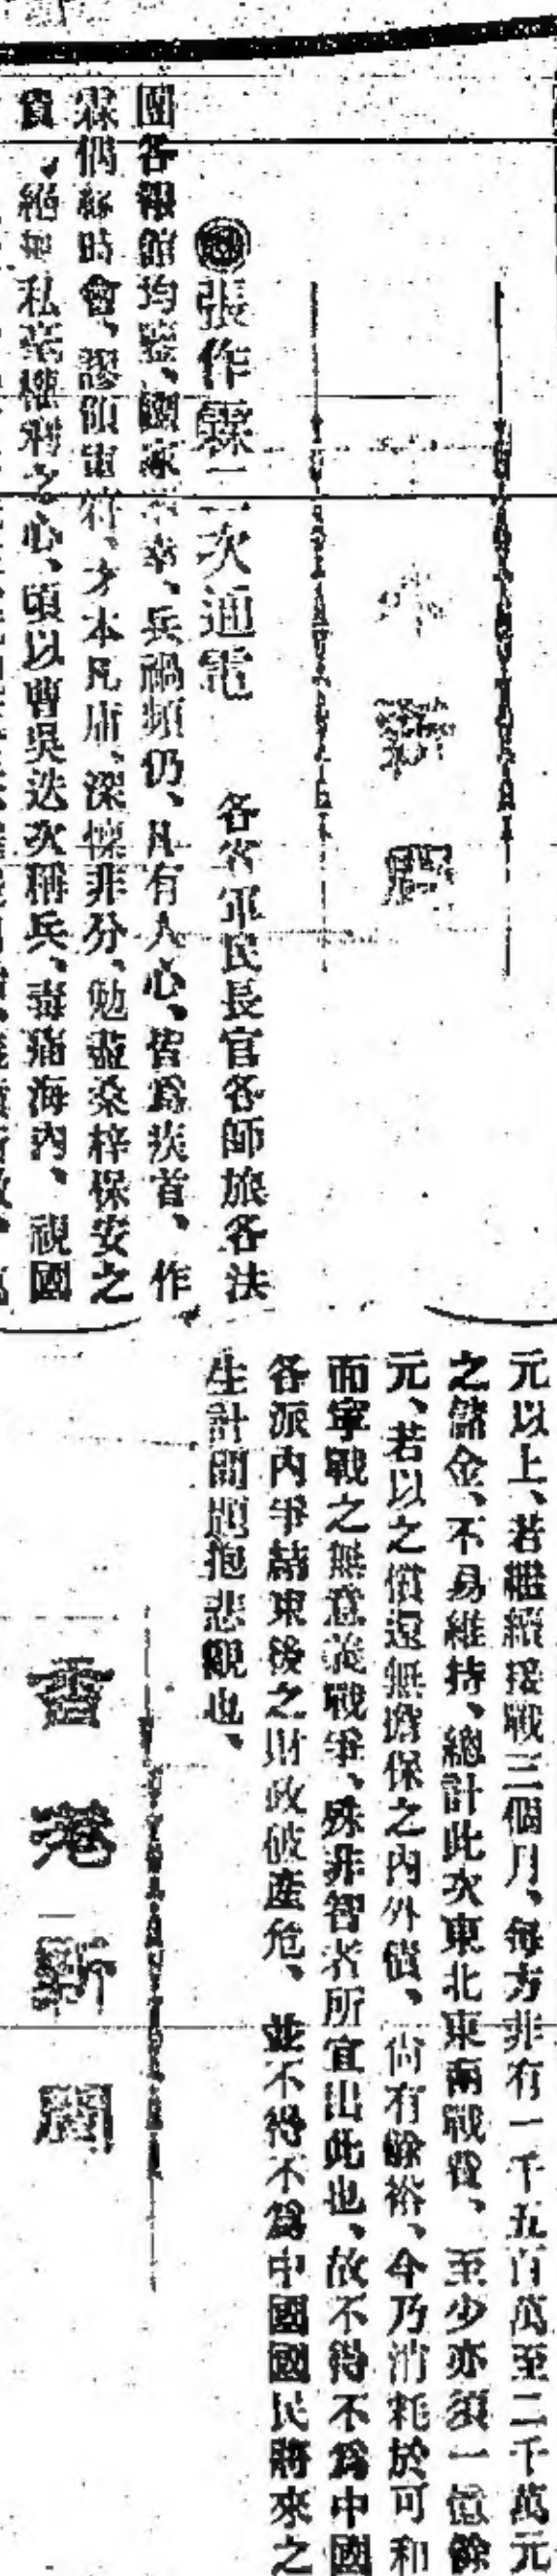 新聞
張作霖二次通電　各省軍民長官各師旅各法
團各報館均鑒、國家不幸、兵禍頻仍、凡有人心、皆爲疾首、作
霖偶緣時會、謬領軍符、才本凡庸、深懷非分、勉盡桑梓保安之
責、絕無私黨權利之心、頃以曹吳迭次稱兵、毒痡海內、視國
元以上、若繼續接戰三個月、每方非有一千五百萬至二千萬元
之儲金、不易維持、總計此次東北東南戰費、至少亦須一億餘
元、若以之償還無擔保之內外債、尚有餘裕、今乃消耗於可和
而寧戰之無意義戰爭、殊非智者所宜出此也、故不得不爲中國
各派內爭結束後之財政破產危、並不得不爲中國國民將來之
生計問題抱悲觀也、
香港新聞